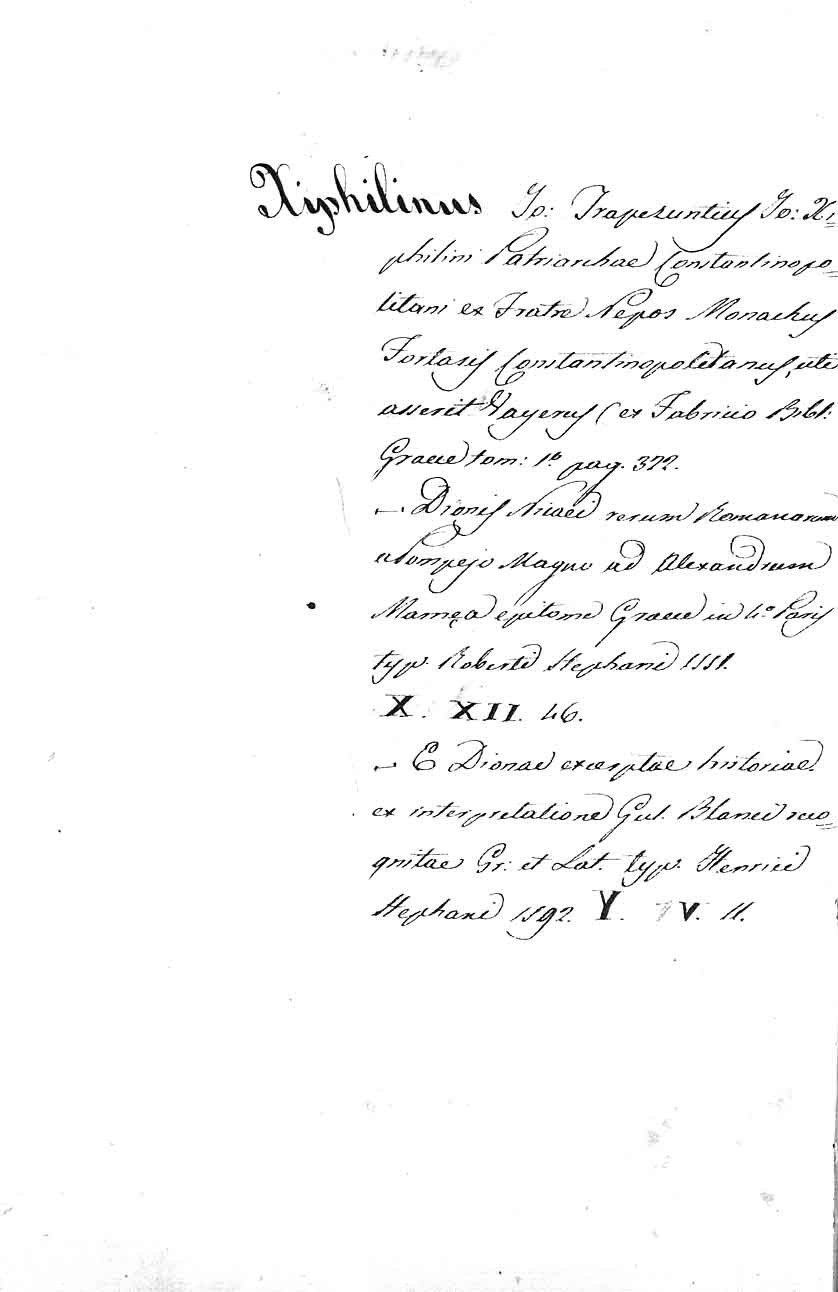 Xiphilinus Jo: Trapezuntius Jo: Xi=
philini Patriarchae Constantinopo=
litani ex Fratre Nepos Monachus
Fortasis Constantinopolitanus, uti
asserit Vayerus (ex Fabricio Bibl:
Graece tom: 1º pag. 372.
— Dionis Nicaei rerum Romanarum
a Pompejo Magno ad Alexandrum
Mamęa epitome Graece in 4º Paris
typ. Roberti Stephani 1551.
X. XII. 46.
— E Dione excerptae historiae
ex interpretatione Gul. Blanci reco=
gnitae Gr: et Lat. typ. Henrici
Stephani 1592. Y. V. 11.